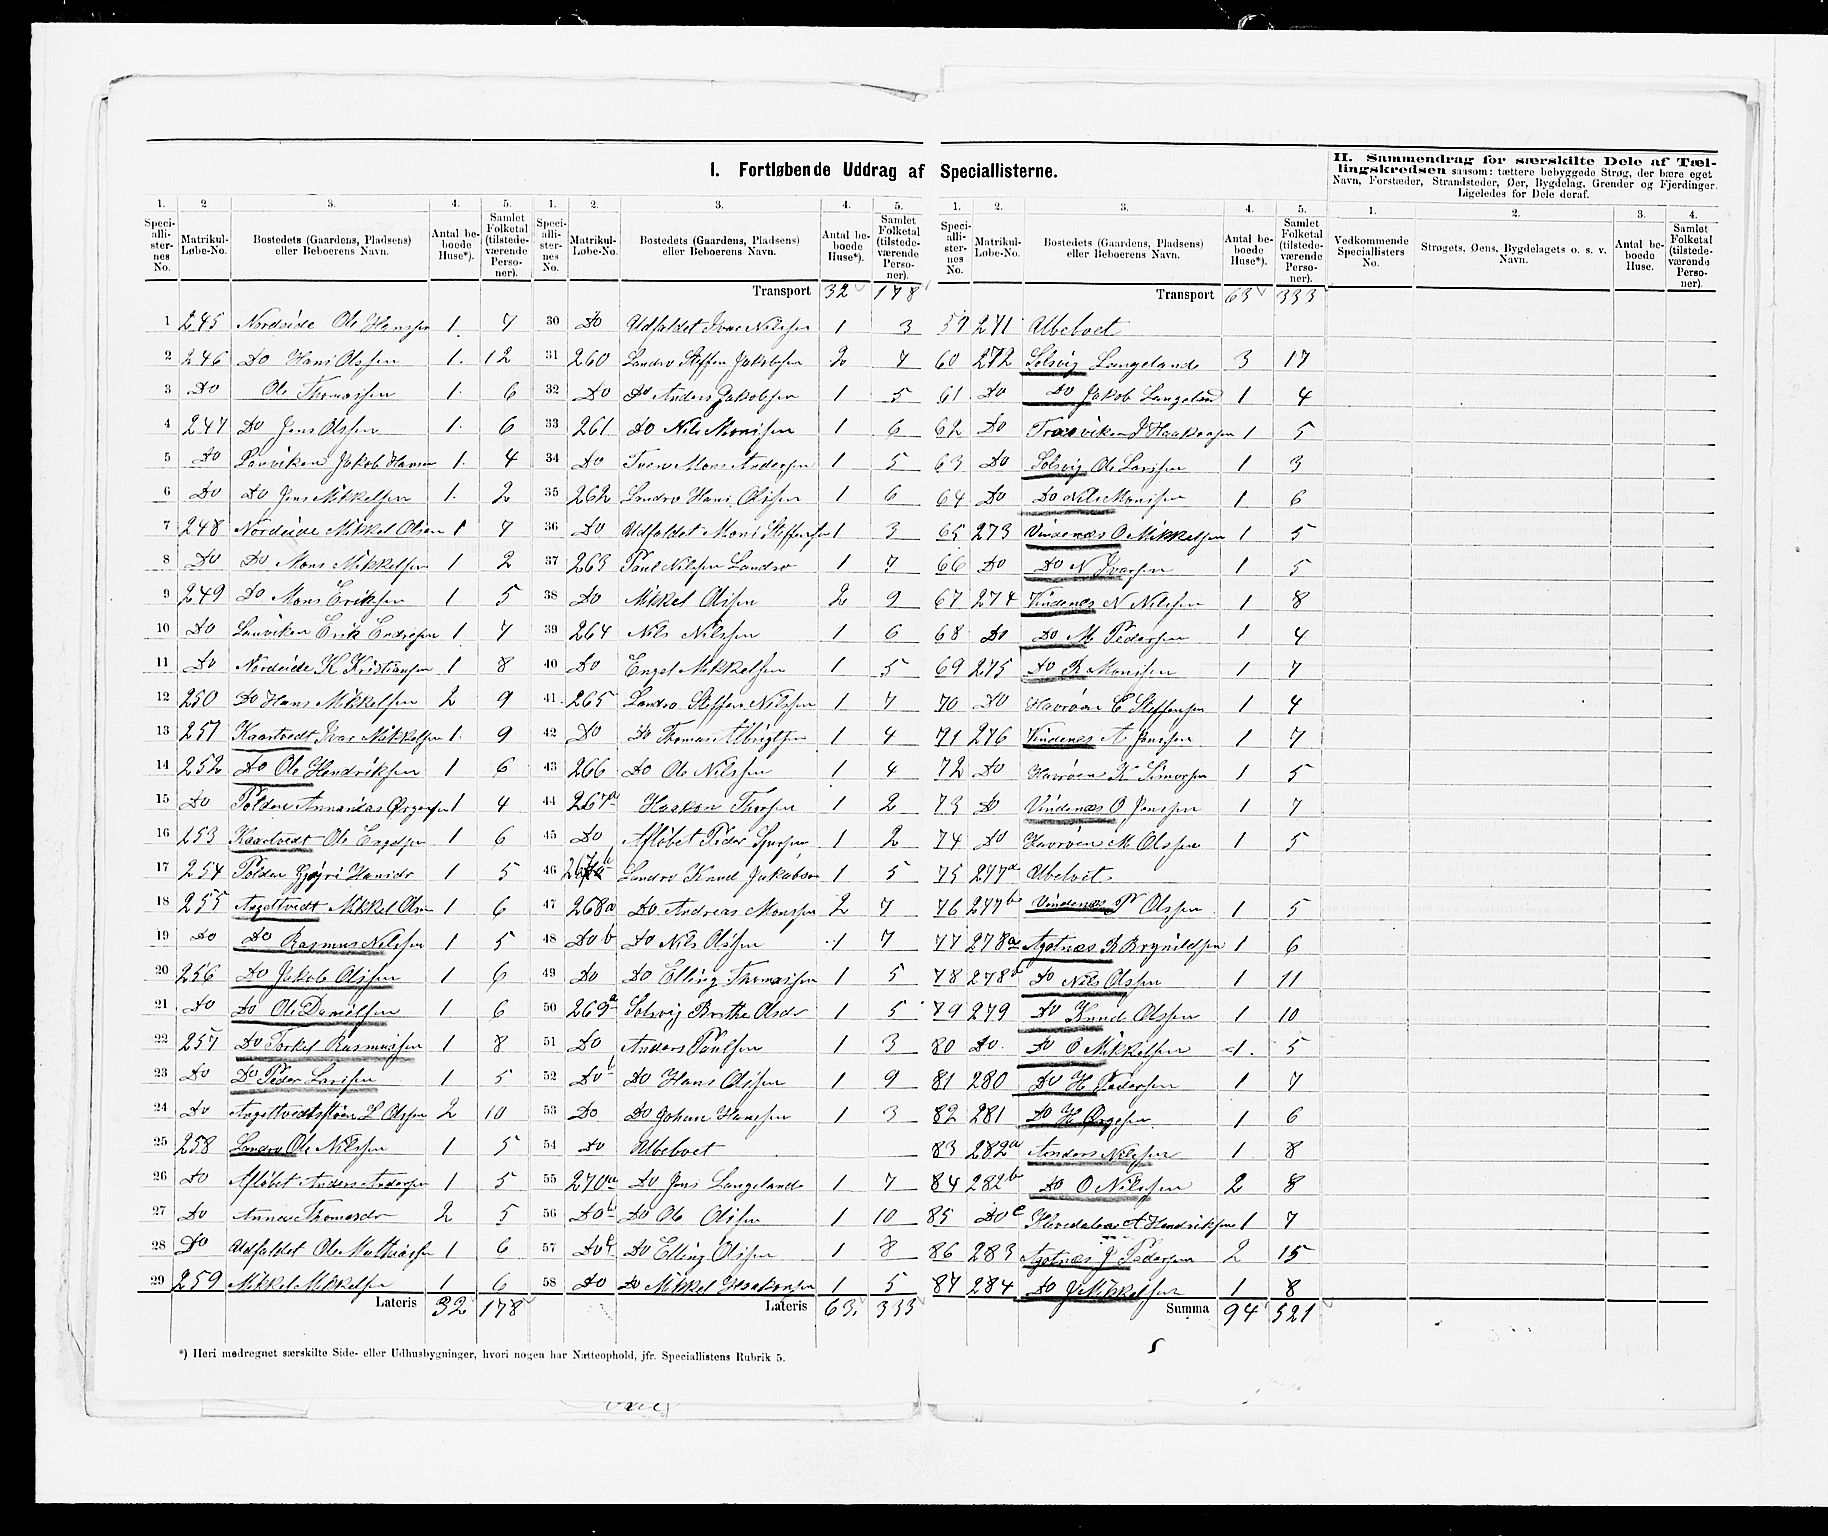 I. Fortløbende Uddrag af Speciallisterne.
1. 2 3. 4. 5.
Speciallisternes No. Matrikul-Løbe-No. Bostedets (Gaardens, Pladsens) eller Beboerens Navn. Antal beboede Huse*). Samlet Folketal (tilstedeværende Personer).
1 245 Nordeide Ole Hanssen 1. 7
2 246 Do Hans Olssen 1. 12
3 Do Ole Thomassen 1. 6
4 247 Do Jens Olssen 1. 6
5 Do Lønviken Jakob Hansen 1. 4
6 Do Do Jens Mikkelsen 1. 2
7 248 Nordeide Mikkel Olsen 1 7
8 Do Do Mons Mikkelsen 1 2
9 249 Do Mons Eriksen 1 5
10 Do Lønviken Erik Endresen 1 7
11 Do Nordeide K Kristiansen 1 8
12 250 Do Hans Mikkelsen 2 9
13 251 Kaartvedt Ivar Mikkelsen 1. 9
14 252 Do Ole Hendriksen 1 6
15 Do Polden Annanias Ørgensen 1 4
16 253 Kaartvedt Ole Engelsen 1 6
17 254 Polden Gjøri Hansdr 1 5
18 255 Angeltvedt Mikkel Olsen 1 6
19 Do Do Rasmus Nilssen 1 5
20 256 Do Jakob Olssen 1 6
21 Do Do Ole Danielsen 1 6
22 257 Do Torkel Rasmussen 1 8
23 Do Do Peder Larssen 1 5
24 Do Angeltvedtsjøen L Olssen 2 10
25 258 Landro Ole Nilssen 1 5
26 Do Afløbet Anders Andersen 1 5
27 Do Anna Thomasdr 2 5
28 Do Udfaldet Ole Mathiassen 1 6
29 259 Mikkel Mikkelsen 1 6
Lateris 32 178
*) Heri medregnet særskilte Side- eller Udhusbygninger, hvori nogen har Natteophold, jfr. Speciallistens Rubrik 5.
1. 2. 3. 4. 5.
Speciallisternes No. Matrikul-Løbe-No. Bostedets (Gaardens, Pladsens) eller Beboerens Navn. Antal beboede Huse*). Samlet Folketal (tilstedeværende Personer).
Transport 32 178
30 Do Udfaldet Ivar Nilssen 1 3
31 260 Landro Steffen Jakobsen 2 7
32 Do Do Anders Jakobsen 1 5
33 261 Do Nils Monssen 1 6
34 Do Mons Andersen 1 5
35 262 Landro Hans Olssen 1 6
36 Do Udfaldet Mons Steffensen 1 3
37 263 Paul Nilssen Landro 1 7
38 Do Mikkel Olssen 2 9
39 264 Nils Nilssen 1 6
40 Do Engel Mikkelsen 1 5
41. 265 Landro Steffen Nilssen 1 7
42 Do Do Thomas Albrigtsen 1 4
43 266 Do Ole Nilssen 1 4
44 267a Haakon Thorsen 1 2
45 Do Afløbet Peder 1 2
46 267b Landro Knud Jakobsen 1 5
47 268a Do Andreas Monssen 2 7
48 Do b Do Nils Olssen 1 7
49 Do Do Elling Thomassen 1 5
50 269a Solsvig Brithe Olsdr 1 5
51 Do Anders Paulsen 1 3
52 Do b Do Hans Olssen 1 9
53 Do Do Johan Hanssen 1 3
54 Do Ubeboet
55 270a Do Jens Langeland 1 7
56 Do b Do Ole Olssen 1 10
57 Do Do Elling Olssen 1 8
58 Do Do Mikkel Haakonsen 1 5
Lateris 63 333
1. 2. 3. 4. 5.
Speciallisternes No. Matrikul-Løbe-No. Bostedets (Gaardens, Pladsens) eller Beboerens Navn. Antal beboede Huse*). Samlet Folketal (tilstedeværende Personer).
Transport 63 333
59 271 Ubeboet
60 272 Solsvig Langeland 3 17
61 Do Do Jakob Langeland 1 4
62 Do J Haakonsen 1 5
63 Do Solsvig Ole Larssen 1 3
64 Do Do Nils Monssen 1 6
65 273 Vindenæs O Mikkelsen 1 5
66 Do Do N Ivarsen 1 5
67 274 Vindenes N Nilssen 1 8
68 Do Do M Pedersen 1 4
69 275 Do R Monssen 1 7
70 Do Havrøen E Steffensen 1 4
71 276 Vindenes A Jenssen 1 7
72 Do Havrøen K Simonsen 1 5
73 Do Vindenæs O Jenssen 1 7
74 Do Havrøen M Olssen 1 5
75 277a Ubeboet
76 277b Vindenæs P Olssen 1 5
77 278a Agotnæs B Brynildsen 1 6
78 278b Do Nils Olssen 1 11
79 279 Do Knud Olssen 1 10
80 Do Do O Mikkelsen 1. 5
81 280 Do H Pedersen 1 7
82 281 Do H Ørgesen 1 6
83 282a Anders Nilssen 1 8
84 282b Do O Nilssen 2 8
85 Do c A Hendriksen 1 7
86 283 Agotnæs J Pedersen 2 15
87 284 Do J Mikkelsen 1 8
Summa 94 521
II. Sammendrag for særskilte Dele af Tællingskredsen saasom: tættere bebyggede Strøg, der bære eget Navn, Forstæder, Strandsteder, Øer, Bygdelag, Grender og Fjerdinger. Ligeledes for Dele deraf.
1. 2. 3. 4.
Vedkommende Speciallisters No. Strøgets, Øens, Bygdelagets o. s. v. Navn. Antal beboede Huse. Samlet Folketal (tilstedeværende Personer).